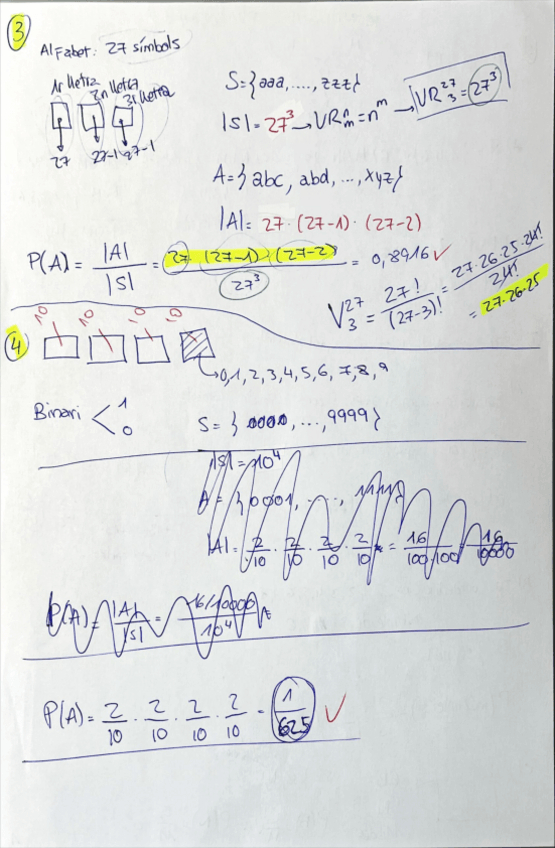 3
Alfabet: 27 símbols
1r lletra 2n lletra 3r lletra
27 27-1 27-1
S={aaa, ...., zzz}
|S|= 27³ → VR n m = n^m → VR 27 3 = 27³
A={abc, abd, ..., xyz}
|A|= 27·(27-1)·(27-2)
P(A) = |A| / |S| = 27·(27-1)·(27-2) / 27³ = 0,8916 ✓
V 27 3 = 27! / (27-3)! = 27·26·25·24! / 24! = 27·26·25
4
10 10 10 10
0,1,2,3,4,5,6,7,8,9
Binari < 1 0
S= { 0000, ..., 9999}
|S| = 10⁴
A = {0001, ...., 1111}
|A| = 2/10 · 2/10 · 2/10 · 2/10 = 16 / 100.100 = 16 / 10000
P(A) = |A| / |S| = 16/10000 / 10⁴ =
P(A) = 2/10 · 2/10 · 2/10 · 2/10 = 1/625 ✓